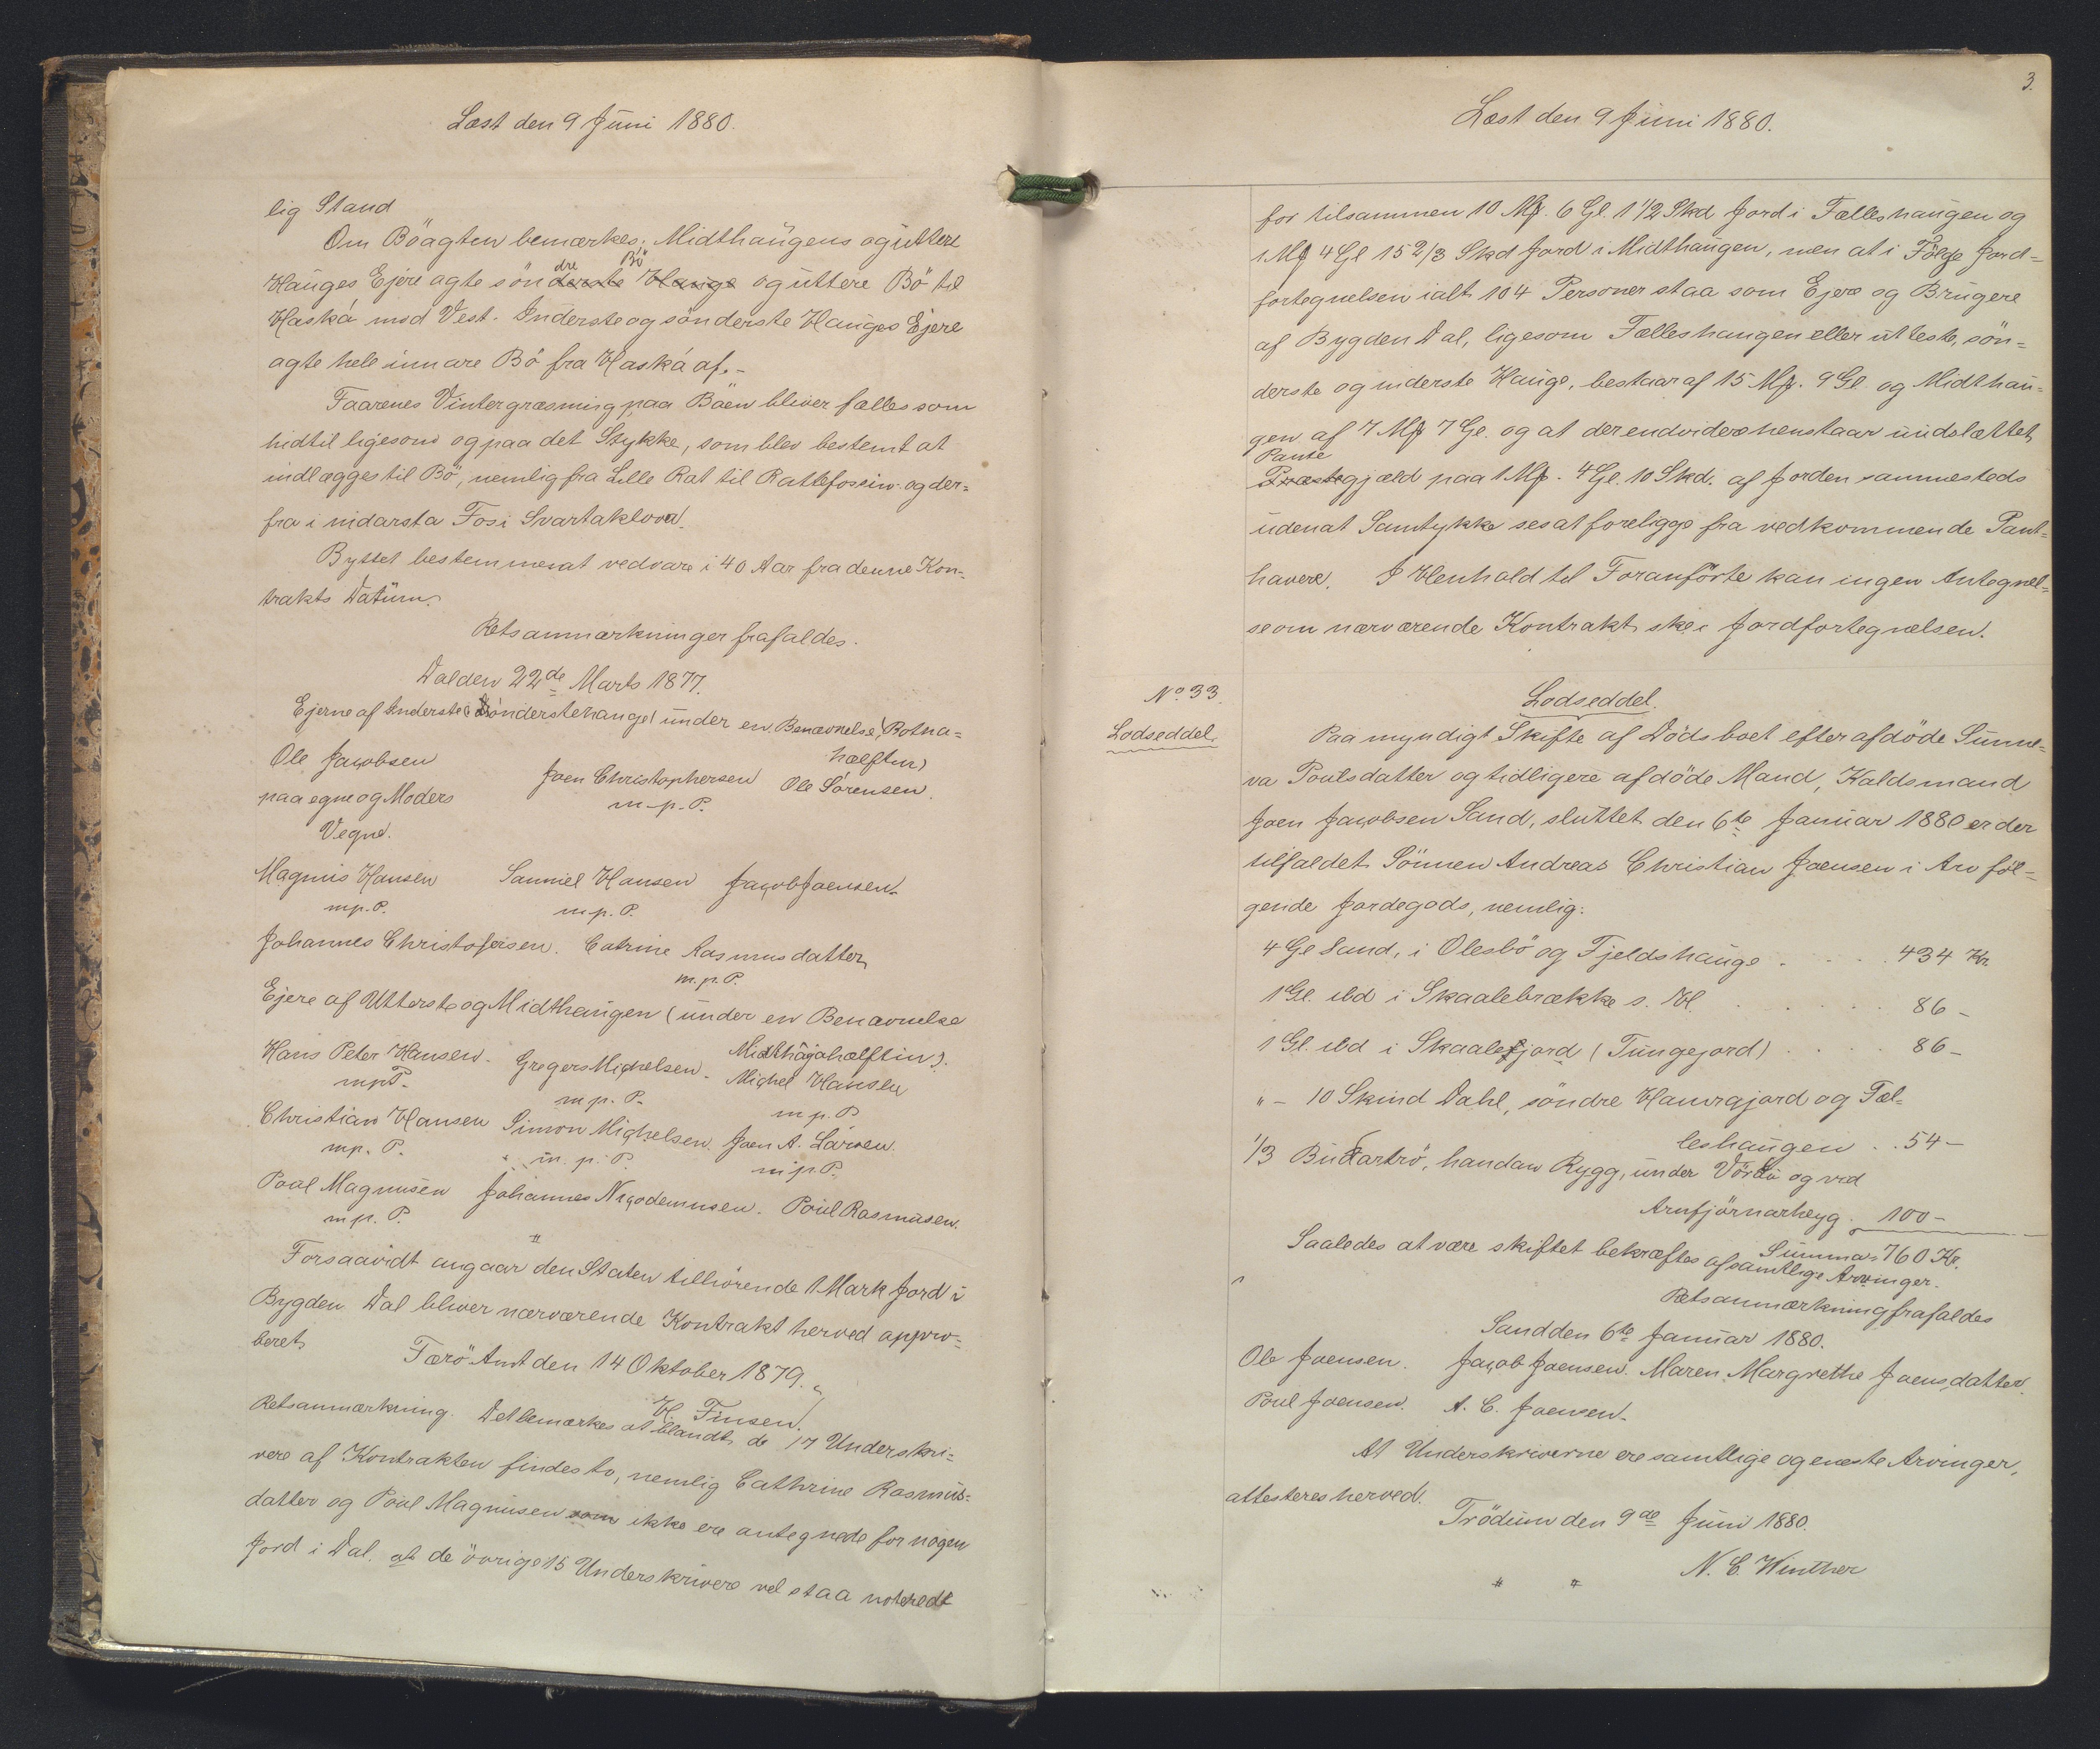 Læst den 9 Juni 1880.
lig Stand
Om Böagten bemærkes: Midthaugens og uttere
dre Bö
Hauges Ejere agte sönderste Hauge og uttere Bö til
Haská mod Vest. Inderste og sönderste Hauges Ejere
agte hele innare Bö fra Haská af.-
Faarenes Vintergræsning paa Böen bliver fælles som
hidtil ligesom og paa det Stykke, som blev bestemt at
indlægges til Bö, nemlig fra Lille Rat til Rattefossin og der=
fra i nidarsta Fos i Svartaklova.
Byttet bestemmes at vedvare i 40 Aar fra denne Kon=
trakts Datum.
Retsanmærkninger frafaldes.
Dal den 22de Marts 1877.
Ejerne af Inderste (Sönderstehauge) under en Benævnelse (Botna=
hælftin)
Ole Jacobsen
paa egne og Moders
Vegne.
Joen Christophersen Ole Sörensen.
m. p. P.
Magnus Hansen Samuel Hansen Jacob Joensen.
m.p. P. m. p. P.
Johannes Christofersen. Catrine Rasmusdatter
m. p. P.
Ejere af Utterste og Midthaugen (under en Benævnelse
Midthágahælftin).
Hans Peter Hansen. Gregers Michelsen. Michel Hansen
m p P. m p. P. m p. P
Christian Hansen Simon Michelsen. Joen A. Larsen.
mp. P. m. p. P. m p. P.
Poal Magnusen Johannes Nicodemusen. Poul Rasmusen.
m p. P.
Forsaavidt angaar den Staten tilhörende 1 Mark Jord i
Bygden Dal bliver nærværende Kontrakt herved appro=
beret
Færö Amt den 14 Oktober 1879.
H. Finsen.
Retsanmærkning. Det bemærkes at blandt de 17 Underskri=
vere af Kontrakten findes to, nemlig Cathrine Rasmus=
datter og Poul Magnusen som ikke ere antegnede for nogen
Jord i Dal, at de övrige 15 Underskrivere vel staa noteredt
3.
Læst den 9 Juni 1880.
for tilsammen 10 Mk. 6 Gl. 1 1/2 Skd Jord i Fælleshaugen og
1 Mk 4 Gl 15 2/3 Skd Jord i Midthaugen, men at i Fölge Jord=
fortegnelsen ialt 104 Personer staa som Ejere og Brugere
af Bygden Dal, ligesom Fælleshaugen eller utterste, sön=
derste og inderste Hauge, bestaar af 15 Mk. 9 Gl. og Midthau=
gen af 7 Mk 7 Gl. og at der endvidere henstaar uudslettet
Pante
Præstegjæld paa 1 Mk. 4 Gl. 10 Skd. af Jorden sammesteds
uden at Samtykke ses at foreligge fra vedkommende Pant=
havere. I Henhold til Foranförte kan ingen Antegnel=
se om nærværende Kontrakt ske i Jordfortegnelsen.
No 33.
Lodseddel.
Lodseddel.
Paa myndigt Skifte af Dödsboet efter afdöde Sunne=
va Poulsdatter og tidligere afdöde Mand, Kaldsmand
Joen Jacobsen Sand, sluttet den 6te Januar 1880 er der
tilfaldet Sönnen Andreas Christian Joensen i Arv föl=
gende Jordegods, nemlig:
4 Gl Sand, i Olesbö og Fjeldshauge . . . . . 434 Kr.
1 Gl. ibd i Skaalebrække s. H. . . . . . 86 -
1 Gl. ibd i Skaalefjord (Tungejord) . . . . 86 -
" - 10 Skind Dahl, söndre Hamrajord og Fæl=
leshaugen . . 54 -
1/3 Budartrö, handan Rygg, under Vördu og ved
Arnfjörnarheyg . 100 -
Summa 760 Kr.
Saaledes at være skiftet bekræftes af samtlige Arvinger.
Retsanmærkning frafaldes
Sand den 6te Januar 1880.
Ole Joensen. Jacob Joensen. Maren Margrethe Joensdatter.
Poul Joensen. A. C. Joensen.
At Underskriverne ere samtlige og eneste Arvinger,
attesteres herved.
Trödum den 9de Juni 1880.
N. C. Winther